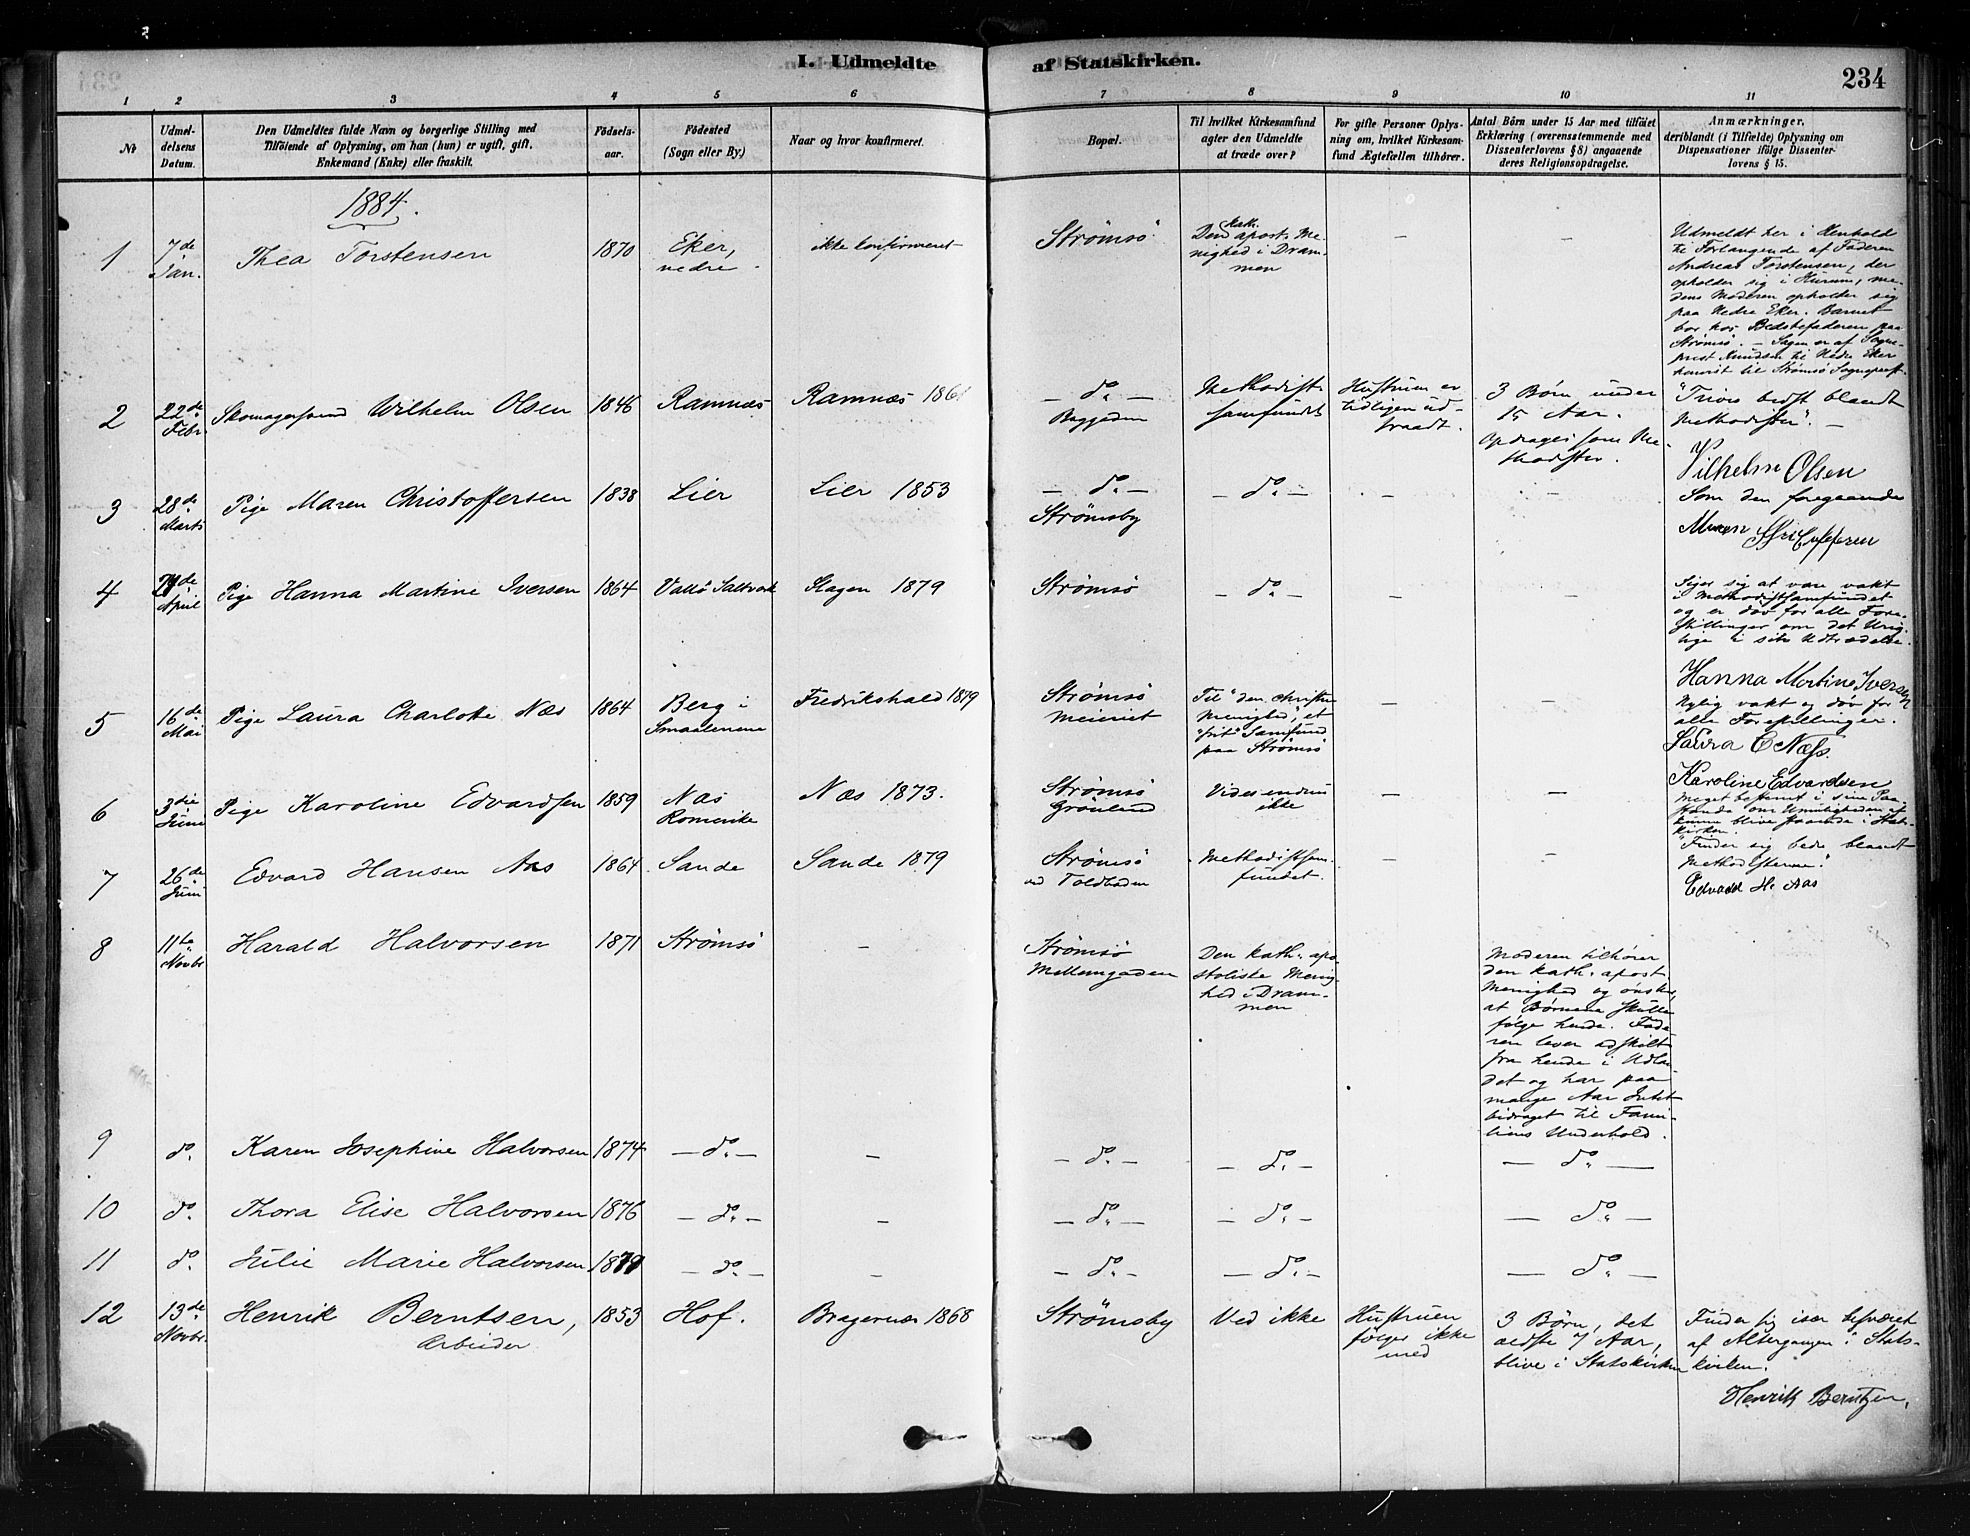 I. Udmeldte af Statskirken.
234
1 2 3 4 5 6 7 8 9 10 11
No
Udmel-
delsens
Datum.
Den Udmeldtes fulde Navn og borgerlige Stilling med
Tilföiende af Oplysning, om han (hun) er ugift, gift,
Enkemand (Enke) eller fraskilt.
Födsels-
aar.
Födested
(Sogn eller By.)
Naar og hvor konfirmeret.
Bopæl.
Til hvilket Kirkesamfund
agter den Udmeldte
at træde over?
For gifte Personer Oplys-
ning om, hvilket Kirkesam-
fund Ægtefællen tilhörer.
Antal Börn under 15 Aar med tilföiet
Erklæring (overensstemmende med
Dissenterlovens § 8) angaaende
deres Religionsopdragelse.
Anmærkninger,
deriblandt (i Tilfælde) Oplysning om
Dispensationer ifölge Dissenter-
lovens § 15.
1884.
1
7de
Jan.
Thea Torstensen
1870
Eker,
nedre.
ikke konfirmeret
Strömsö.
Den kath. apost. Me-
nighed i Dram-
men
—
—
Udmeldt her i Henhold
til Forlangende af Faderen
Andreas Torstensen, der
opholder sig i Hurum, me-
dens Moderen opholder sig
paa Nedre Eker. Barnet
bor hos Bedstefaderen paa
Strömsö. — Sagen er af Sogne-
prest Knudsen til Nedre Eker
henvist til Strömsö Sognepræst.
2
22de
Febr.
Skomagersvend Wilhelm Olsen
1846
Ramnæs
Ramnæs 1861
— do —
Byggaden
Methodist-
samfundet
Hustruen er
tidligen ud-
traadt.
3 Börn under
15 Aar.
Opdrages som Me-
thodister.
"Trives bedst blandt
Methodister". —
Vilhelm Olsen
3
28de
Marts
Pige Maren Christoffersen
1838
Lier
Lier 1853
— do —
Strömsby
— do —
—
—
Som den foregaaende
Maren
4
April
Pige Hanna Martine Iversen
1864
Vallö Saltverk
Slagen 1879
Strömsö
— do —
—
—
Siger sig at være vakt
i Methodistsamfundet
og er döv for alle Fore-
stillinger om det Urig-
tige i sin Udtrædelse.
Hanna Martine Iversen
5
16de
Mai
Pige Laura Charlotte Næs
1864
Berg i
Smaalenene
Fredrikshald 1879
Strömsö
Meieriet
Til "den christne
Menighed", et
"frit" Samfund
paa Strömsö
—
—
Nylig vakt og döv for
alle Forestillinger.
Laura C Næss.
6
3die
Juni
Pige Karoline Edvardsen
1859
Næs
Romerike
Næs 1873.
Strömsö
Grönland
Vides endnu
ikke
—
—
Karoline Edvardsen
Meget bestemt i sin Paa-
stand om Umuligheden af
kunne blive staaende i Stats-
kirken.
7
26de
Juni
Edvard Hansen Aas
1864
Sande
Sande 1879
Strömsö
ved Toldboden
Methodistsam-
fundet.
—
—
"Finder sig bedre blandt
Methodisterne".
Edvadd H. Aas
8
11te
Novbr
Harald Halvorsen
1871
Strömsö
—
Strömsö
Mellemgaden
Den kath. apo-
stoliske Menig-
hed i Dram-
men
Moderen tilhörer
den kath. apost.
Menighed og önsker,
at Börnene skulle
fölge hende. Fade-
ren lever adskilt
fra hende i Udlan-
det og har paa
mange Aar Intet
bidraget til Fami-
liens Underhold.
9
do.
Karen Josephine Halvorsen
1874
— do. —
—
— do. —
— do. —
— do. —
10
do.
Thora Elise Halvorsen
1876
— do. —
—
— do. —
— do. —
— do. —
11
do.
Julie Marie Halvorsen
1879
— do. —
—
— do. —
— do. —
— do. —
12
13de
Novbr.
Henrik Berntsen,
Arbeider
1853
Hof.
Bragernæs 1868
Strömsby
Ved ikke
Hustruen
fölger ikke
med
3 Börn, det
ældste 7 Aar,
blive i Statskirken
Finder sig især besværet
af Altergangen i Stats-
kirken.
Henrik Berntzen.